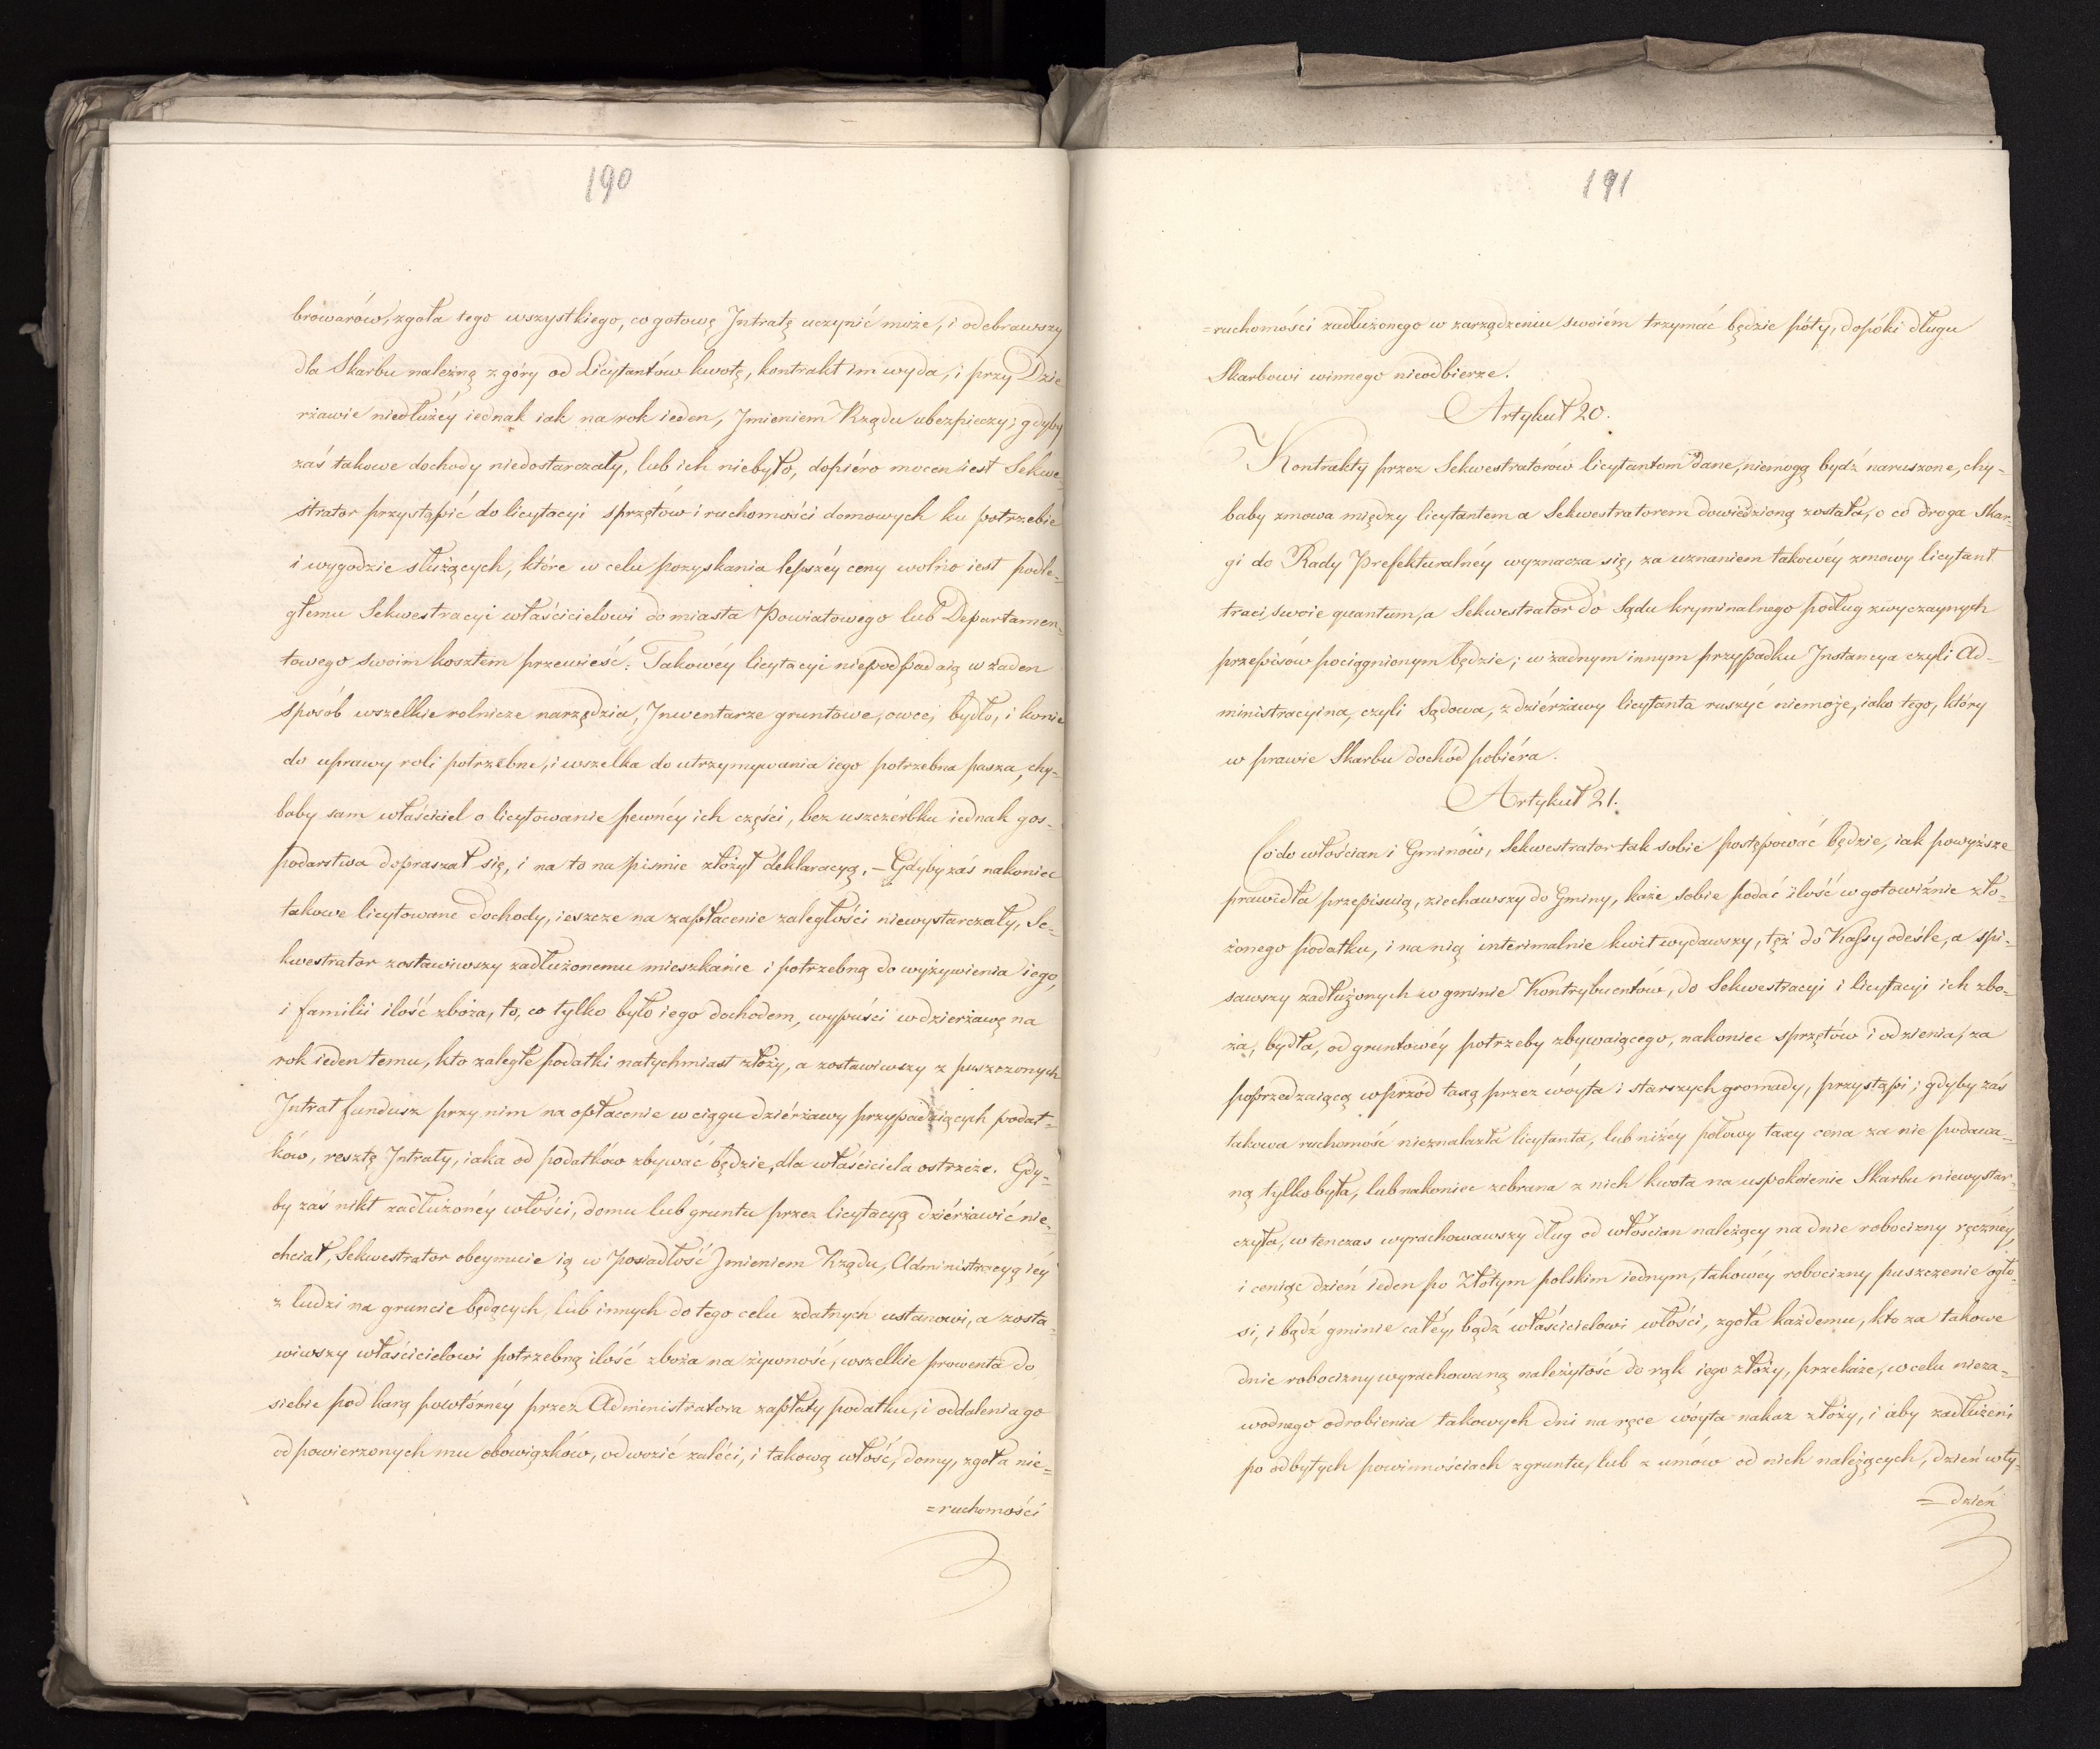 190
browarów, zgoła tego wszystkiego, co gotowę Jntratę uczynić może, i odebrawszy
dla Skarbu należną z góry od Licytantów kwotę, kontrakt im wyda, i przy Dzie
rżawie niedłużéy iednak iak na rok ieden, Jmieniem Rządu ubezpieczy; gdyby
zaś takowe dochody niedostarczały, lub ich niebyło, dopiéro mocen iest Sekwe
strator przystąpić do licytacyi sprzętów i ruchomości domowych ku potrzebie
i wygodzie służących, które w celu pozyskania lepszéy ceny wolno iest podle-
głemu Sekwestracyi właścicielowi do miasta Powiatowego lub Departamen-
towego swoim kosztem przewieść. Takowéy licytacyi niepodpadaią w żaden
sposób wszelkie rolnicze narzędzia, Jnwentarze gruntowe, owce, bydło, i konie
do uprawy roli potrzebne, i wszelka do utrzymywania iego potrzebna pasza, chy-
baby sam właściciel o licytowanie pewnéy ich części, bez uszczérbku iednak gos-
podarstwa dopraszał się, i na to na piśmie złożył deklaracyą. – Gdyby zaś nakoniec
takowe licytowane dochody, ieszcze na zapłacenie zaległości niewystarczały, Se-
kwestrator zostawiwszy zadłużonemu mieszkanie i potrzebną do wyżywienia iego,
i familii ilość zboża, to, co tylko było iego dochodem, wypuści w dzierżawę na
rok ieden temu, kto zaległe podatki natychmiast złoży, a zostawiwszy z puszczonych
Jntrat fundusz przy nim na opłacenie w ciągu dziérżawy przypadaiących podat-
ków, resztę Jntraty, iaka od podatków zbywać będzie, dla właściciela ostrzeże. Gdy-
by zaś nikt zadłużonéy włości, domu lub gruntu przez licytacyą dziérżawić nie-
chciał, Sekwestrator obeymuie ią w Posiadłość Jmieniem Rządu, Administracyą iéy
z ludzi na gruncie będących, lub innych do tego celu zdatnych ustanowi, a zosta-
wiwszy właścicielowi potrzebną ilość zboża na żywność, wszelkie prowenta do
siebie pod karą powtórnéy przez Administratora zapłaty podatku, i oddalenia go
od powierzonych mu obowiązków, odwozić zaléci, i takową włość, domy, zgoła nie=
=ruchomości
191
=ruchomości zadłużonego w zarządzeniu swoiém trzymać będzie póty, dopóki długu
Skarbowi winnego nieodbierze.
Artykuł 20.
Kontrakty przez Sekwestratorów licytantom dane, niemogą bydź naruszone, chy-
baby zmowa między licytantem a Sekwestratorem dowiedzioną została, o co droga Skar-
gi do Rady Prefekturalnéy wyznacza się, za uznaniem takowéy zmowy licytant
traci swoie quantum, a Sekwestrator do Sądu kryminalnego podług zwyczaynych
przepisów pociągnionym będzie; w żadnym innym przypadku Jnstancya czyli Ad-
ministracyina, czyli Sądowa, z dziérżawy licytanta ruszyć niemoże, iako tego, który
w prawie Skarbu dochód pobiéra.
Artykuł 21.
Co do włościan i Gminów, Sekwestrator tak sobie postępować będzie, iak powyższe
prawidła przepisuią, ziechawszy do Gminy, każe sobie podać ilość w gotowiźnie zło-
żonego podatku, i na nią interimalnie kwit wydawszy, tęż do Kassy odeśle, a spi-
sawszy zadłużonych w gminie Kontrybuentów, do Sekwestracyi i licytacyi ich zbo-
ża, bydła, od gruntowéy potrzeby zbywaiącego, nakoniec sprzętów i odzienia, za
poprzedzaiącą wprzód taxą przez wóyta i starszych gromady, przystąpi; gdyby zaś
takowa ruchomość nieznalazła licytanta, lub niżéy połowy taxy cena za nie podawa-
ną tylko była, lub nakoniec zebrana z nich kwota na uspokoienie Skarbu niewystar-
czyła, w tenczas wyrachowawszy dług od włościan należący na dnie robocizny ręcznéy,
i ceniąc dzień ieden po Złotym polskim iednym, takowéy robocizny puszczenie ogło-
si, i bądź gminie całéy, bądź właścicielowi włości, zgoła każdemu, kto za takowe
dnie robocizny wyrachowaną należytość do rąk iego złoży, przekaże, w celu nieza-
wodnego odrobienia takowych dni na ręce wóyta nakaz złoży, i aby zadłużeni
po odbytych powinnościach z gruntu, lub z umów od nich należących, dzień w ty-
= dzień